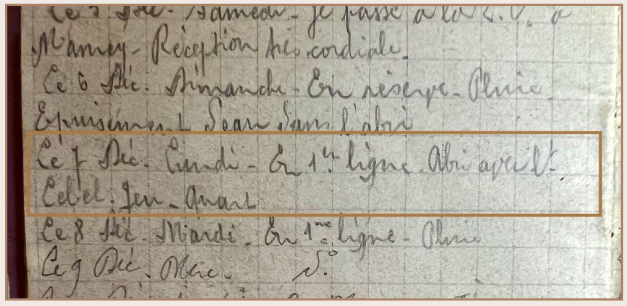 Le 5 Déc. Samedi - Je passe à la
Mamey - Réception très cordiale.
Le 6 Déc. Dimanche - En réserve - Pluie
Epuisement d'eau dans l'abri
Le 7 Déc. Lundi - En 1re ligne. Abri avec Lt.
Lebel. Jeu - Quart
Le 8 Déc. Mardi. En 1ère ligne - Pluie
Le 9 Déc. Mer. do